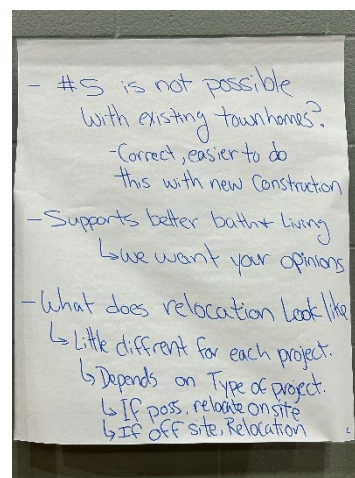 - #5 is not possible
with existing townhomes?
- Correct, easier to do
this with new Construction
- Supports better bath + Living
↳ we want your opinions
- What does relocation Look like
↳ Little diffrent for each project.
↳ Depends on Type of project.
↳ If poss, relocate onsite
↳ If off site, Relocation